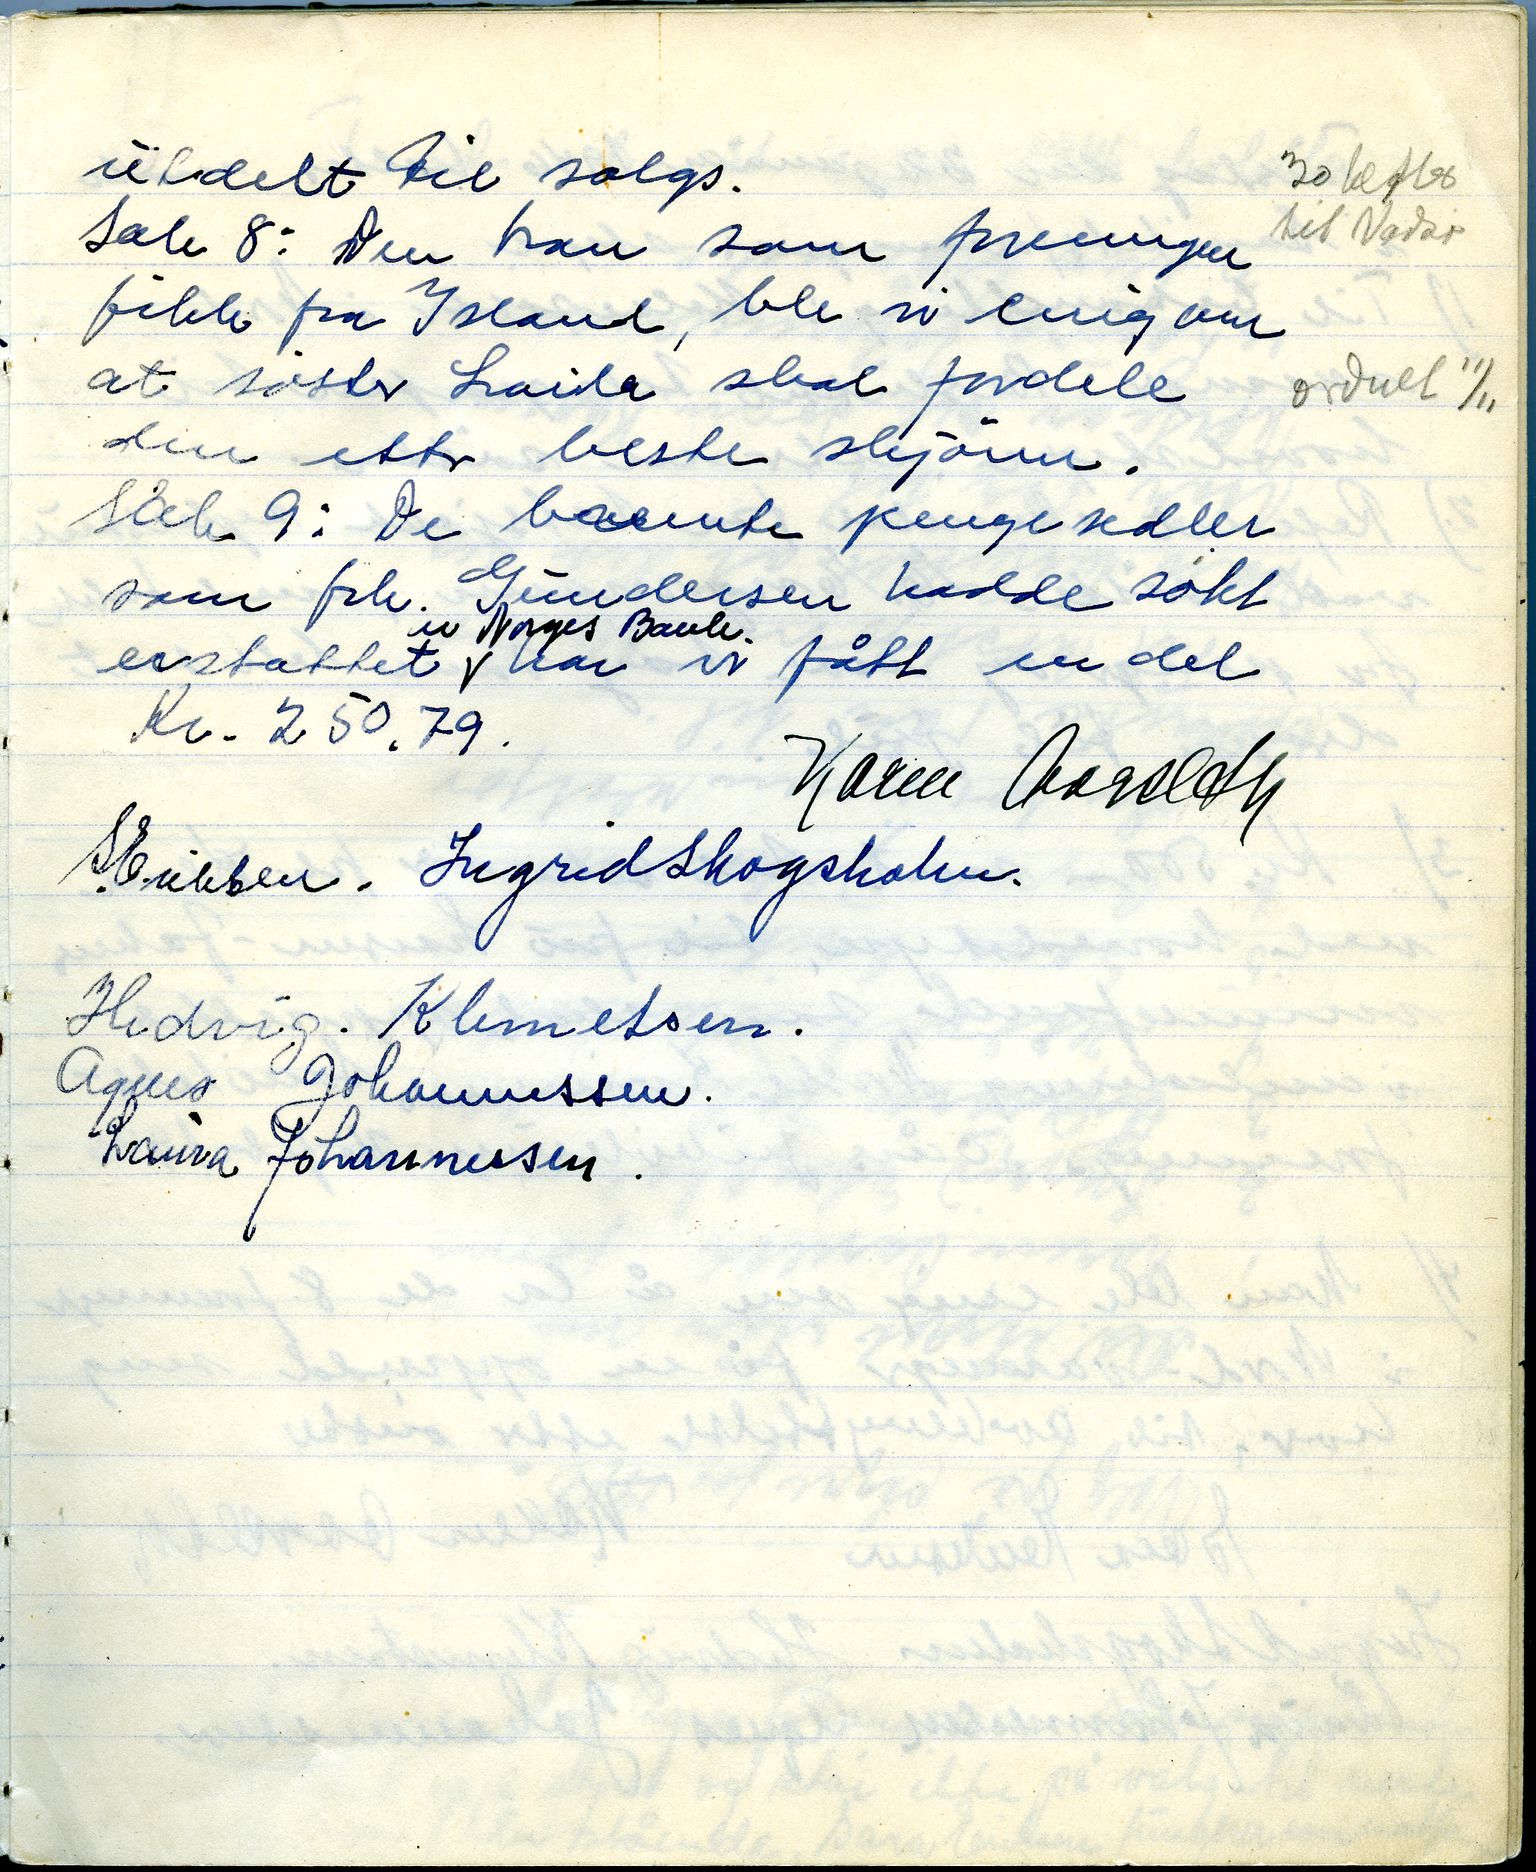 utdelt til salgs.
30 hefter
til Vadsö
Sak 8: Den tran som foreningen
fikk fra Island, ble vi enig om
at söster Laila skal fordele
ordnet 11/11
den etter beste skjönn.
Sak 9: De brente pengesedler
som frk. Gundersen hadde sökt
erstattet i Norges Bank har vi fått en del
Kr. 250.79.
Karen
S. Eriksen. Ingrid Skogsholm.
Hedvig. Klemetsen.
Agnes Johannessen.
Laura Johannessen.